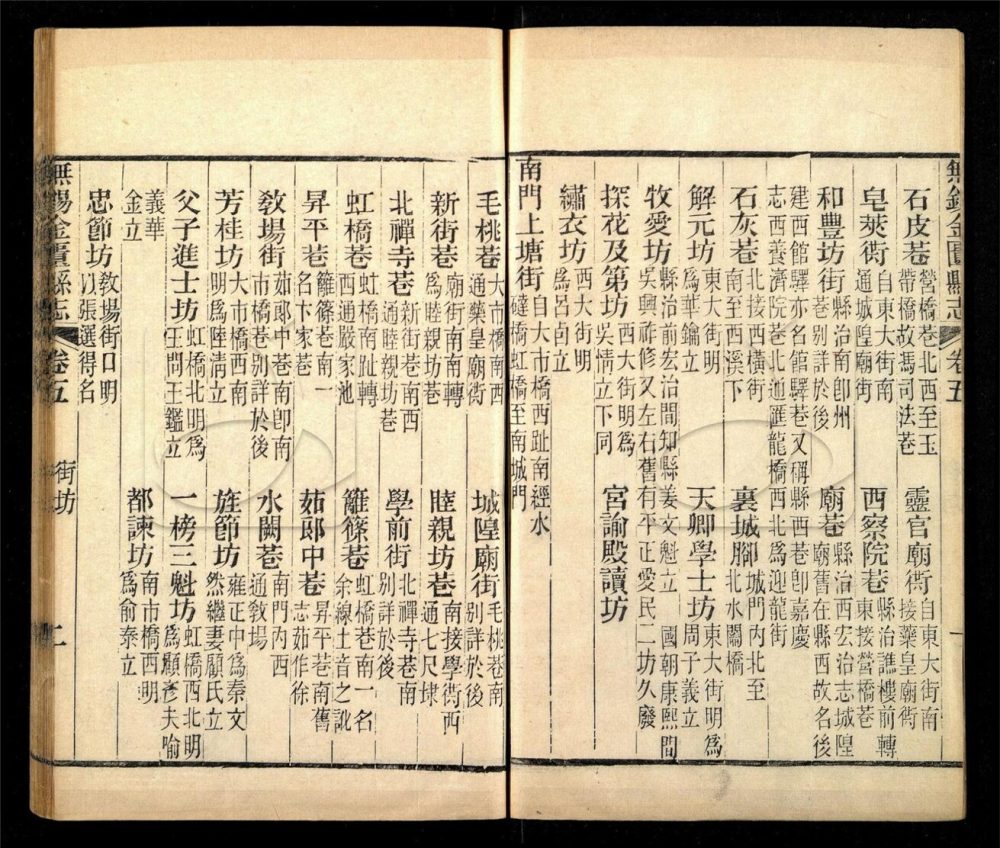 無錫金匱縣志 卷五 一
石皮巷 營橋巷北西至玉
帶橋故馮司法巷
靈官廟衖 自東大街南
接藥皇廟衖
皂莢衖 自東大街南
通城隍廟街
西察院巷 縣治譙樓前轉
東接營橋巷
和豐坊街 縣治南卽州
巷別詳於後
廟巷 縣治西宏治志城隍
廟舊在縣西故名後
建西館驛亦名館驛巷又稱縣西巷卽嘉慶
志西養濟院巷北通匯龍橋西北為迎龍街
石灰巷 北接西橫街
南至西溪下
裏城腳 城門內北至
北水關橋
解元坊 東大街明
為華鑰立
天卿學士坊 東大街明為
周子義立
牧愛坊 縣治前宏治間知縣姜文魁立 國朝康熙間
吳興祚修又左右舊有平正愛民二坊久廢
探花及第坊 西大街明為
吳情立下同
宮諭殿讀坊
繡衣坊 西大街明
為呂卣立
南門上塘街 自大市橋西趾南經水
橋虹橋至南城門
毛桃巷 大市橋南西
通藥皇廟街
城隍廟街 毛桃巷南
別詳於後
新街巷 廟街南南轉
為睦親坊巷
睦親坊巷 南接學衖西
通七尺埭
北禪寺巷 新街巷南西
通睦親坊巷
學前街 北禪寺巷南
別詳於後
虹橋巷 虹橋南趾轉
西通嚴家池
籬篠巷 虹橋巷南一名
余線土音之訛
昇平巷 籬篠巷南一
名卞家巷
茹郞中巷 昇平巷南舊
志茹作徐
敎場街 茹郞中巷南卽南
市橋巷別詳於後
水關巷 南門內西
通敎場
芳桂坊 大市橋西南
明為陸清立
旌節坊 雍正中為秦文
然繼妻顧氏立
父子進士坊 虹橋北明為
王問王鑑立
一榜三魁坊 虹橋西北明
為顧彥夫喻
義華
金立
都諫坊 南市橋西明
為俞泰立
忠節坊 敎場街口明
以張選得名
無錫金匱縣志 卷五 街坊 二